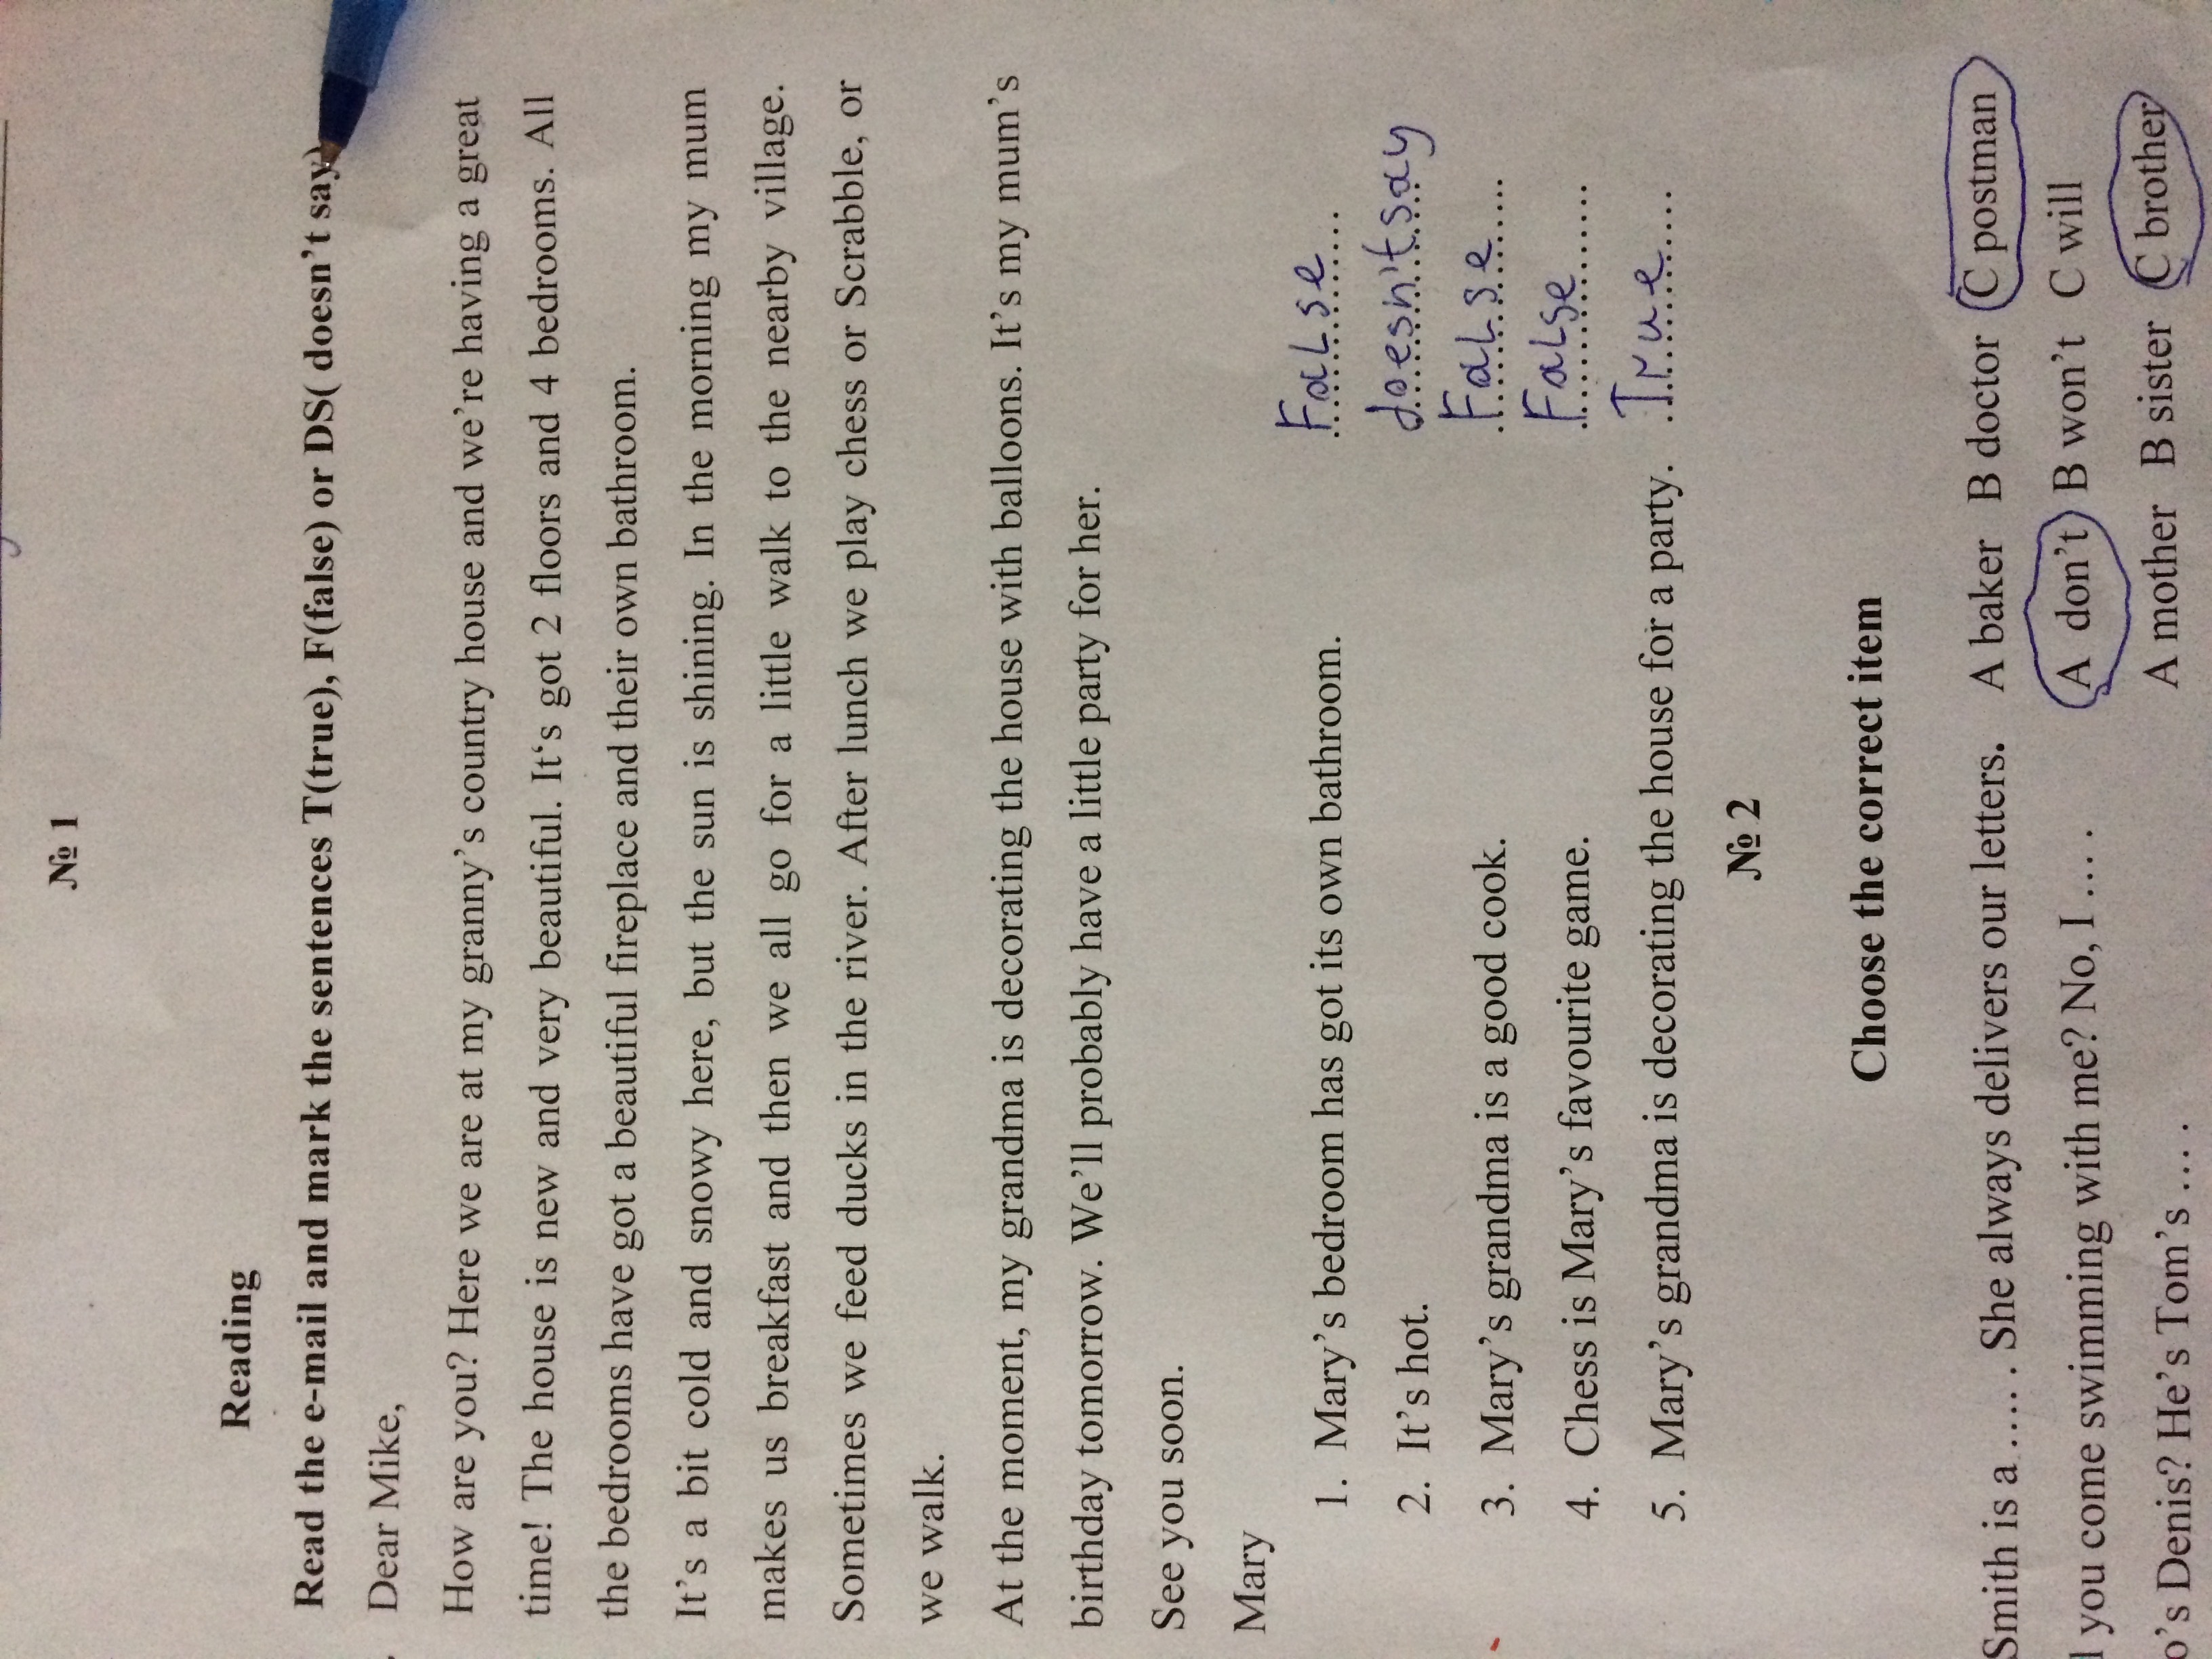 № 1
Reading
Read the e-mail and mark the sentences T(true), F(false) or DS( doesn't say)
Dear Mike,
How are you? Here we are at my granny's country house and we're having a great
time! The house is new and very beautiful. It‘s got 2 floors and 4 bedrooms. All
the bedrooms have got a beautiful fireplace and their own bathroom.
It's a bit cold and snowy here, but the sun is shining. In the morning my mum
makes us breakfast and then we all go for a little walk to the nearby village.
Sometimes we feed ducks in the river. After lunch we play chess or Scrabble, or
we walk.
At the moment, my grandma is decorating the house with balloons. It's my mum's
birthday tomorrow. We'll probably have a little party for her.
See you soon.
Mary
1. Mary's bedroom has got its own bathroom. False
2. It's hot. doesn't say
3. Mary's grandma is a good cook. False
4. Chess is Mary's favourite game. False
5. Mary's grandma is decorating the house for a party. True
№ 2
Choose the correct item
Smith is a ..... . She always delivers our letters. A baker B doctor C postman
you come swimming with me? No, I .... . A don't B won't C will
Denis? He's Tom's .... . A mother B sister C brother